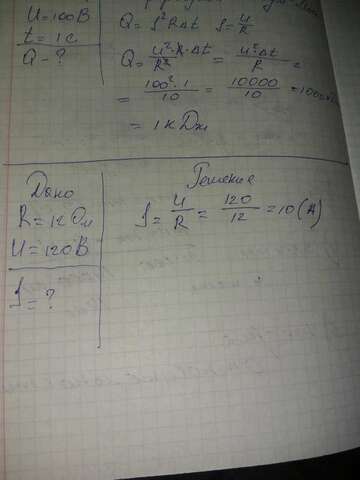 U=100В
t=1с
Q-?
Q=I²RΔt I=U/R
Q=U²·R·Δt/R²=U²·Δt/R=
=100²·1/10=10000/10=1000
=1кДж
Дано
R=12Ом
U=120В
I=?
Решение
I=U/R=120/12=10(A)